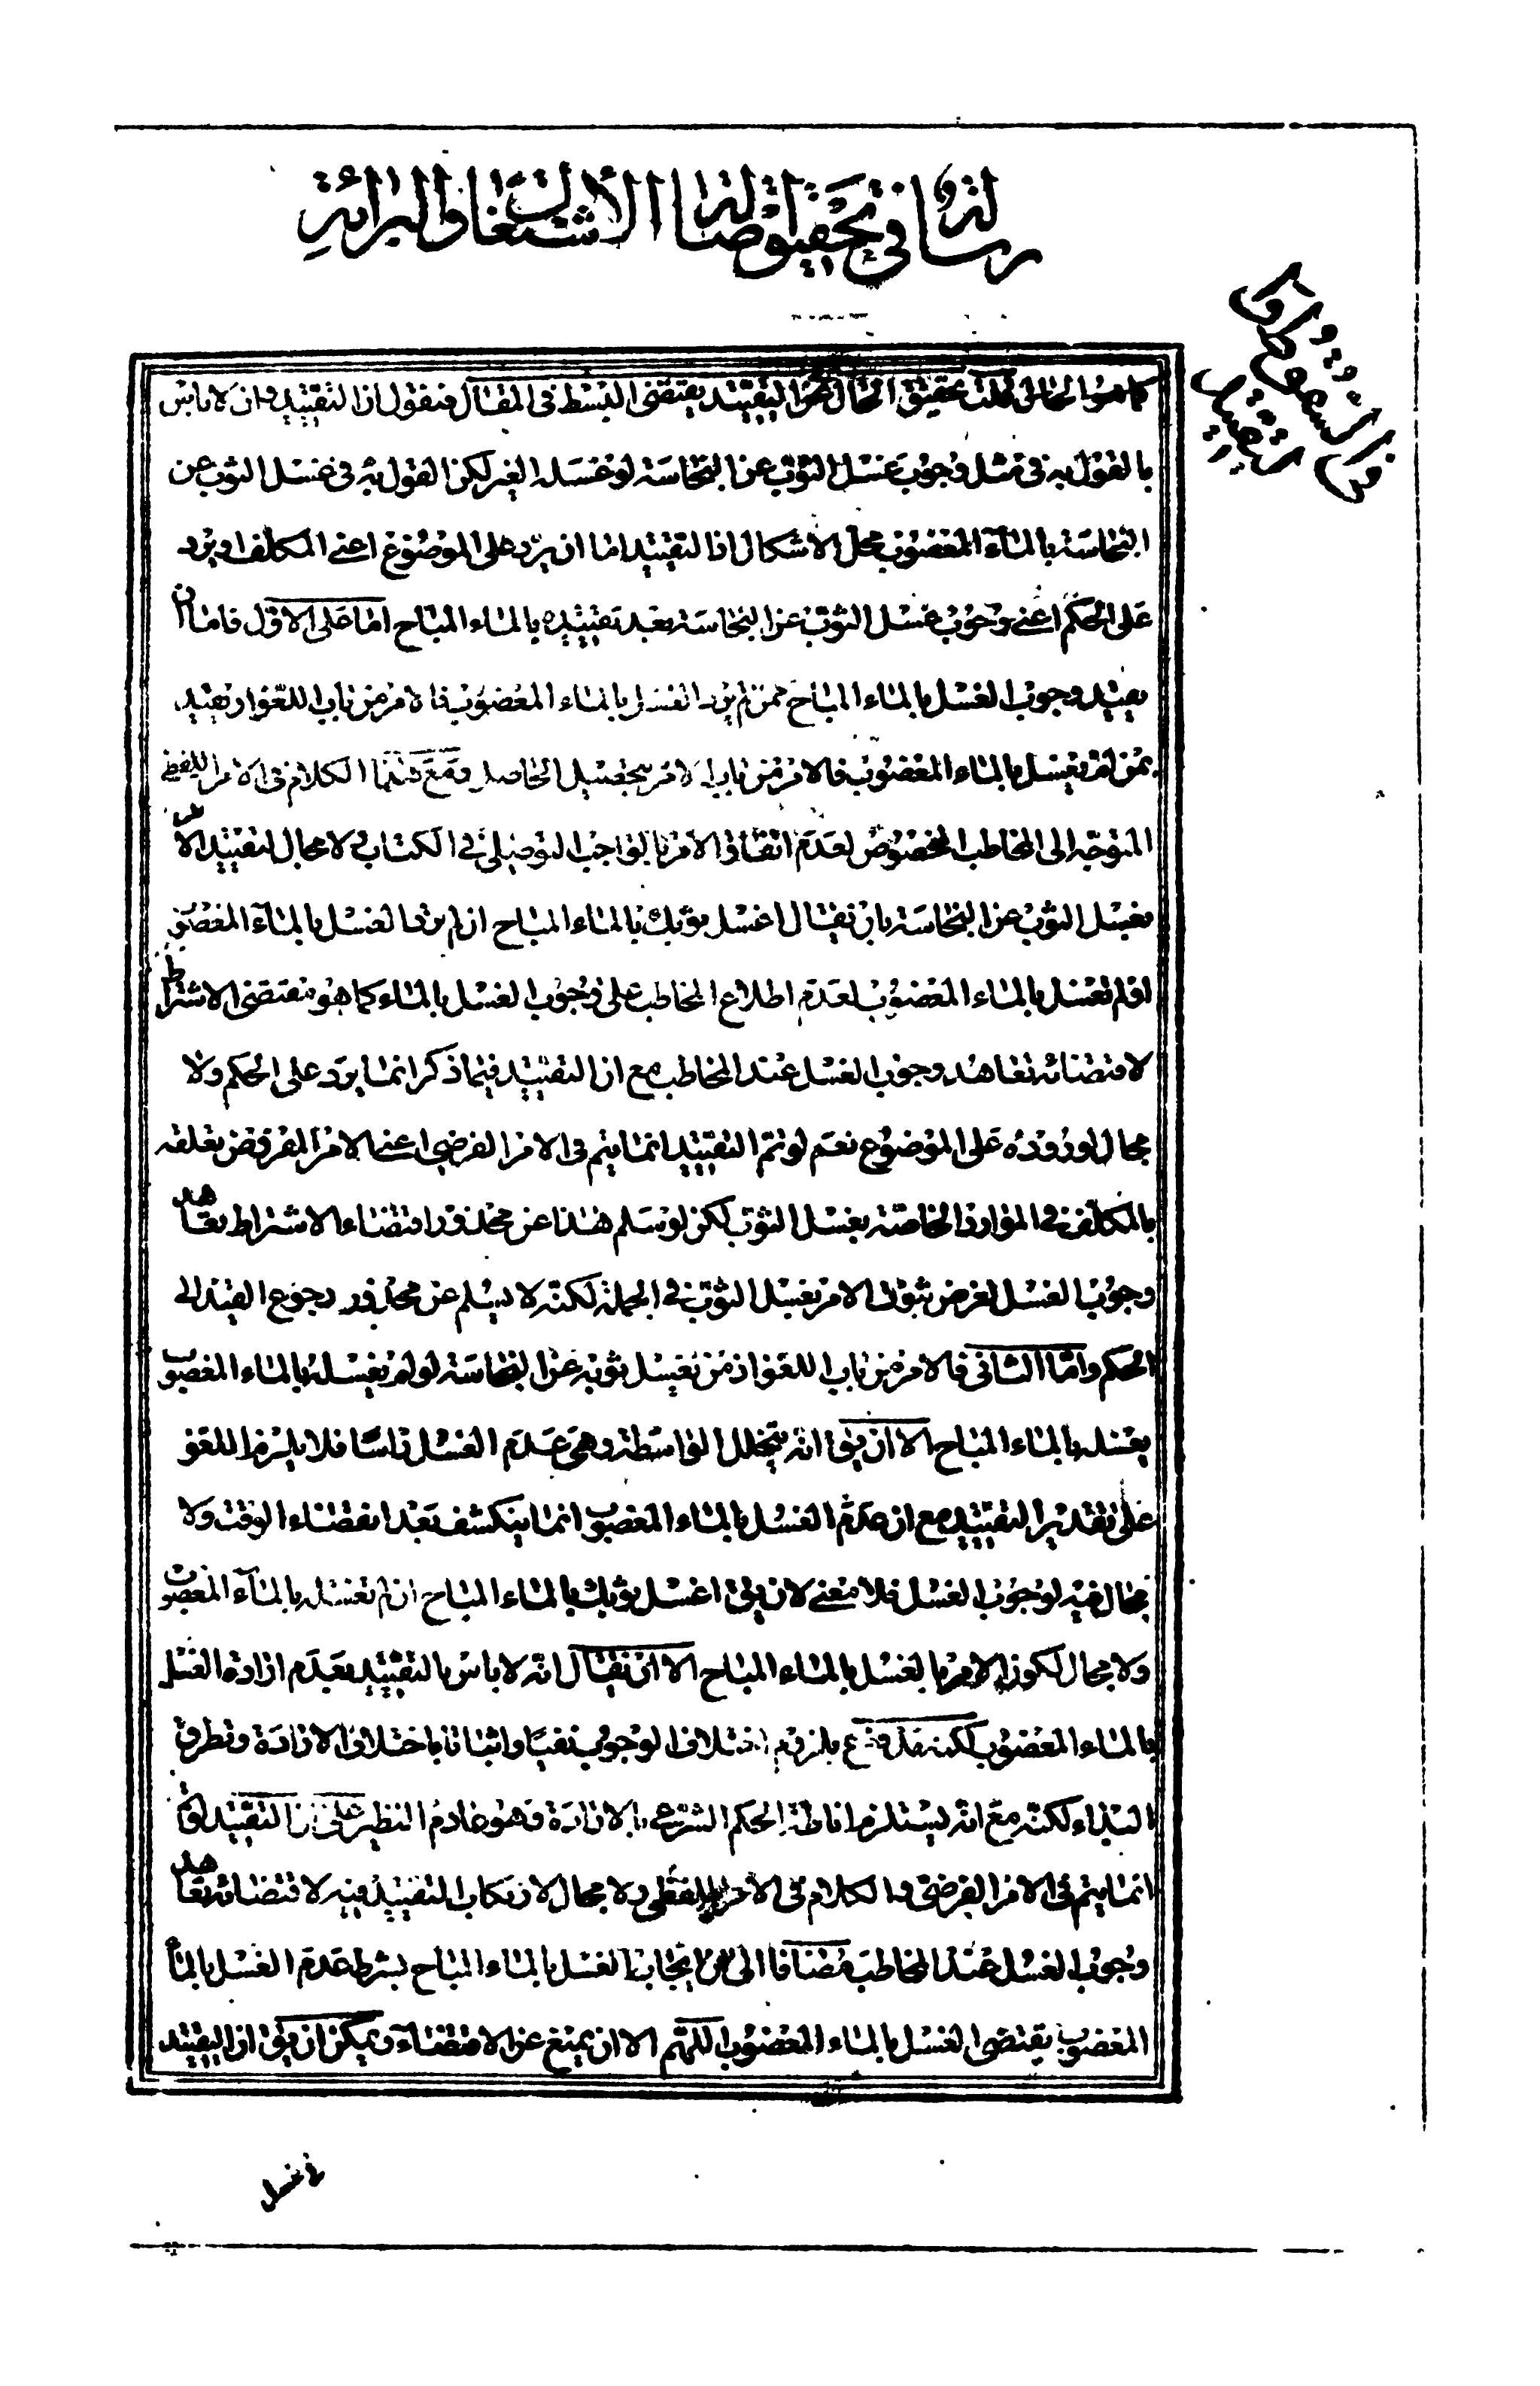 رسالة في تحقيق اصالة الاشتغال والبرائة
كما هو الحال قلت تحقيق الحال فى التقييد يقتضى البسط فى المقال فنقول ان التقييد وان لا باس
بالقول به فى مثل وجوب غسل الثوب عن النجاسة لو غسله الغير لكن القول به فى غسل الثوب عن
النجاسة بالماء المغصوب محل الاشكال اذ التقييد اما ان يرد على الموضوع اعنى المكلف او يرد
على الحكم اعنى وجوب غسل الثوب عن النجاسة بعد تقييده بالماء المباح اما على الاول فاما ان
يقيد وجوب الغسل بالماء المباح بمن لم يرد الغسل بالماء المغصوب فالامر من باب اللغو او يقيد
بمن لم يغسل بالماء المغصوب فالامر من باب الامر بتحصيل الحاصل ومع هذا الكلام فى الامر اللفظى
المتوجه الى المخاطب المخصوص لعدم اتفاق الامر بالواجب التوصلى فى الكتاب ولا مجال لتقييد الامر
بغسل الثوب عن النجاسة بان يقال اغسل ثوبك بالماء المباح ان لم ترد الغسل بالماء المغصوب
او لم تغسل بالماء المغصوب لعدم اطلاع المخاطب على وجوب الغسل بالماء كما هو مقتضى الاشتراط
لاقتضائه تعاهد وجوب الغسل عند المخاطب مع ان التقييد فيما ذكر انما يرد على الحكم ولا
مجال لوروده على الموضوع نعم لو تم التقييد انما يتم فى الامر الفرضى اعنى الامر المفروض تعلقه
بالمكلف فى الموارد الخاصة بغسل الثوب لكن لو سلم هذا عن محذور اقتضاء الاشتراط تعاهد
وجوب الغسل لفرض ثبوت الامر بغسل الثوب فى الجملة لكنه لا يسلم عن محذور رجوع القيد الى
الحكم واما الثانى فالامر من باب اللغو اذ من يغسل ثوبه عن النجاسة لو لم يغسله بالماء المغصوب
يغسله بالماء المباح الا ان يق انه يتخلل الواسطة وهى عدم الغسل راسا فلا يلزم اللغو
على تقدير التقييد مع ان عدم الغسل بالماء المغصوب انما ينكشف بعد انقضاء الوقت ولا
مجال فيه لوجوب الغسل فلا معنى لان يق اغسل ثوبك بالماء المباح ان لم تغسله بالماء المغصوب
ولا مجال لكون الامر بالغسل بالماء المباح الا ان يقال انه لا باس بالتقييد بعدم ارادة الغسل
بالماء المغصوب لكنه مدفوع بلزوم اختلاف الوجوب نفيا واثباتا باختلاف الارادة وتطرق
البداء لكنه مع انه يستلزم اناطة الحكم الشرعى بالارادة وهو عادم النظير على ان التقييد لو تم
انما يتم فى الامر الفرضى والكلام فى الامر اللفظى ولا مجال لارتكاب التقييد فيه لاقتضائه تعاهد
وجوب الغسل عند المخاطب مضافا الى ان ايجاب الغسل بالماء المباح بشرط عدم الغسل بالماء
المغصوب يقتضى الغسل بالماء المغصوب اللهم الا ان يمنع عن الاقتضاء ويمكن ان يق ان التقييد